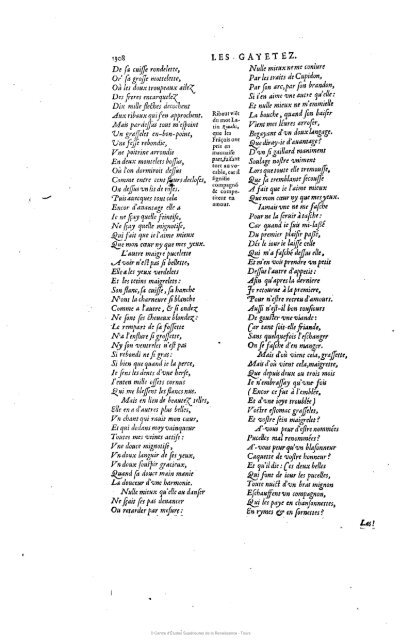 1308
LES GAYETEZ.
De sa cuisse rondelette,
Or' sa grosse mottelette,
Où les doux troupeaux ailez
Des freres enarquelez
Dix mille flèches decochent
Aux ribaux qui s'en approchent.
Mais par dessus tout m'espoint
Vn grasselet en-bon-point,
Vne fesse rebondie,
Vne poitrine arrondie
En deux montelets bossus,
Où l'on dormiroit dessus
Comme entre cent fleurs decloses,
Ou dessus vn lit de roses.
Puis auecques tout cela
Encor d'auantage elle a
Ie ne sçay quelle feintise,
Ne sçay quelle mignotise,
Qui fait que ie l'aime mieux
Que mon cœur ny que mes yeux.
L'autre maigre pucelette
A voir n'est pas si bellette,
Elle a les yeux verdelets
Et les tetins maigrelets:
Son flanc, sa cuisse, sa hanche
N'ont la charneure si blanche
Comme a l'autre, & si ondez
Ne sont ses cheueux blondez:
Le rempart de sa fossette
N'a l'enflure si grossette,
Ny son ventrelet n'est pas
Si rebondi ne si gras:
Si bien que quand ie la perce,
Ie sens les dents d'vne herse,
I'enten mille ossets cornus
Qui me blessent les flancs nus.
Mais en lieu de beautez telles,
Elle en a d'autres plus belles,
Vn chant qui rauit mon cœur,
Et qui dedans moy vainqueur
Toutes mes veines attise:
Vne douce mignotise,
Vn doux languir de ses yeux,
Vn doux souspir gracieux,
Quand sa douce main manie
La douceur d'vne harmonie.
Nulle mieux qu'elle au danser
Ne sçait ses pas deuancer
Ou retarder par mesure:
Ribaut viẽt
du mot La-
tin
que les
Frãçois ont
pris en
mauuaise
part,
cable, car il
signifie
compagnõ
& compa-
triote en
amour.
Nulle mieux ne me coniure
Par les traits de Cupidon,
Par son arc, par son brandon,
Si i'en aime vne autre qu'elle:
Et nulle mieux ne m'emmielle
La bouche, quand son baiser
Vient mes léures arroser,
Begayant d'vn doux langage.
Que diray-ie d'auantage?
D'vn si gaillard maniment
Soulage nostre vniment
Lors que toute elle tremousse,
Que sa tremblante secousse
A fait que ie l'aime mieux
Que mon cœur ny que mes yeux.
Iamais vne ne me fasche
Pour ne la seruir à tasche:
Car quand ie suis mi-lassé
Du premier plaisir passé,
Dés le iour ie laisse celle
Qui m'a fasché dessus elle,
Et m'en vois prendre vn petit
Dessus l'autre d'appetit:
Afin qu'apres la derniere
Ie retourne à la premiere,
Pour n'estre recreu d'amours.
Aussi n'est-il bon tousiours
De gouster vne viande:
Car tant soit-elle friande,
Sans quelquefois l'eschanger
On se fasche d'en manger.
Mais d'où vient cela, grassette,
Mais d'où vient cela, maigrette,
Que depuis deux ou trois mois
Ie n'embrassay qu'vne fois
(Encor ce fut à l'emblee,
Et d'vne ioye troublee)
Vostre estomac grasselet,
Et vostre sein maigrelet?
A-vous peur d'estre nommées
Pucelles mal renommées?
A-vous peur qu'vn blasonneur
Caquette de vostre honneur?
Et qu'il die: Ces deux belles
Qui font de iour les pucelles,
Toute nuict d'vn bras mignon
Eschauffent vn compagnon,
Qui les paye en chansonnettes,
En rymes & en sornettes?
Las!
© Centre d'Études Supérieures de la Renaissance - Tours